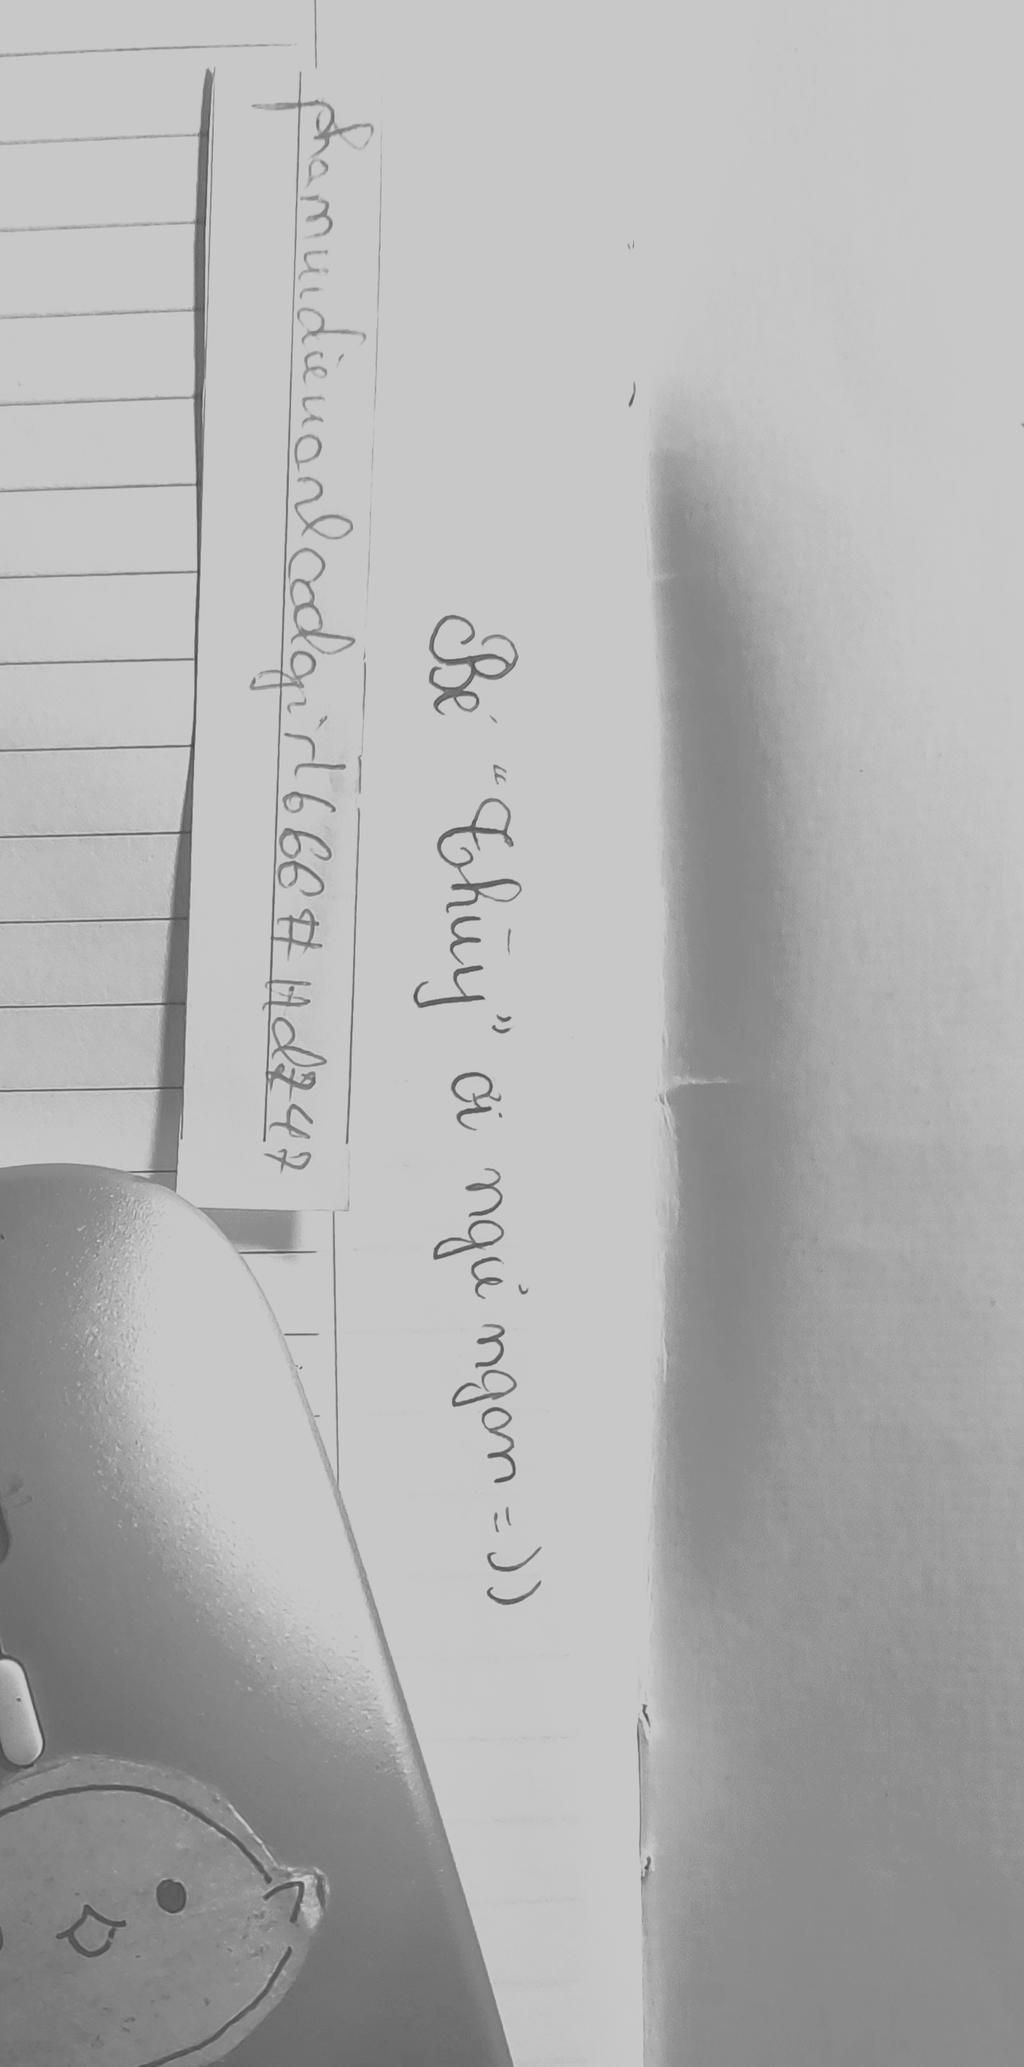 Bé "Thùy" ơi ngủ ngon =))
phamvudieuanlcodgirl666#Hd747